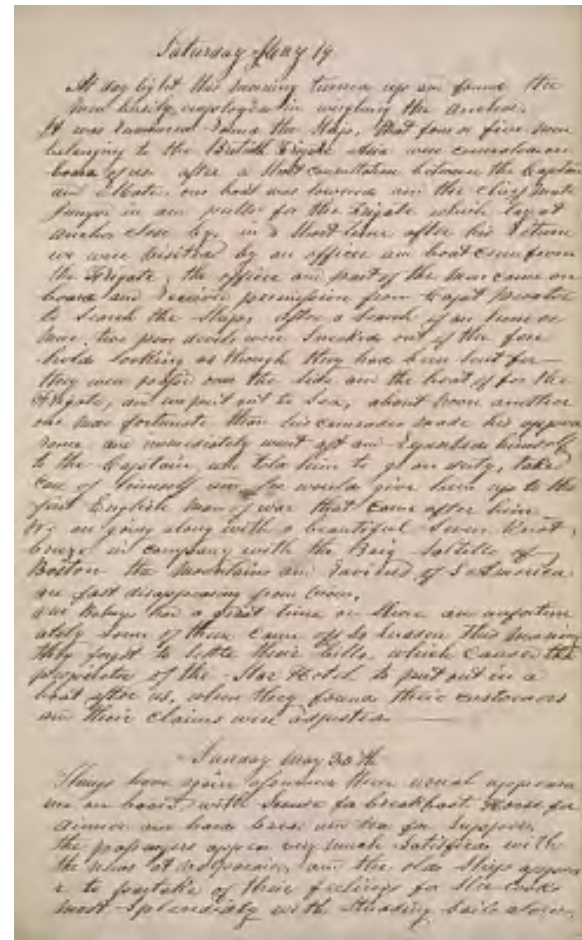 Saturday May 19
At day light this morning turned up and found the
men busily employed in weighing the anchor.
It was rumored round the Ship, that four or five men
belonging to the British Frigate were concealed on
board of us after a short consultation between the Captain
and Mate, our boat was lowered and the chief mate
jumped in and pulled for the Frigate which lay at
anchor close by, in a short time after his return
we were visited by an officer and boats crew from
the Frigate, the officer and part of the men came on
board and received permission from Capt
to search the Ship, after a search of an hour or
more, two poor devils were sneaked out of the fore
hold looking as though they had been sent for
they were passed over the side and the boat off for the
Frigate, and we put out to Sea, about noon another
one more fortunate than his comrades made his appea
rance and immediately went aft and himself
to the Captain who told him to go on duty, take
care of himself and he would give him up to the
first English man of war that came after him
We are going along with a beautiful seven knot
breeze in company with the Brig of
Boston the mountains and ravines of S America
are fast disappearing from view.
our had a great time on Shore and unfortun
ately some of them came off in such haste this morning
they forgot to settle their bills, which caused the
proprietor of the Star Hotel to put out in a
boat after us, when they found their customers
and their claims were adjusted
Sunday May 20th
Things have again assumed their usual appearan
ce on board with for breakfast for
dinner and hard bread and tea for supper.
the passengers appear very much satisfied with
the and the old Ship appea
rs to partake of their feelings for she
most splendidly with studding sails alow,